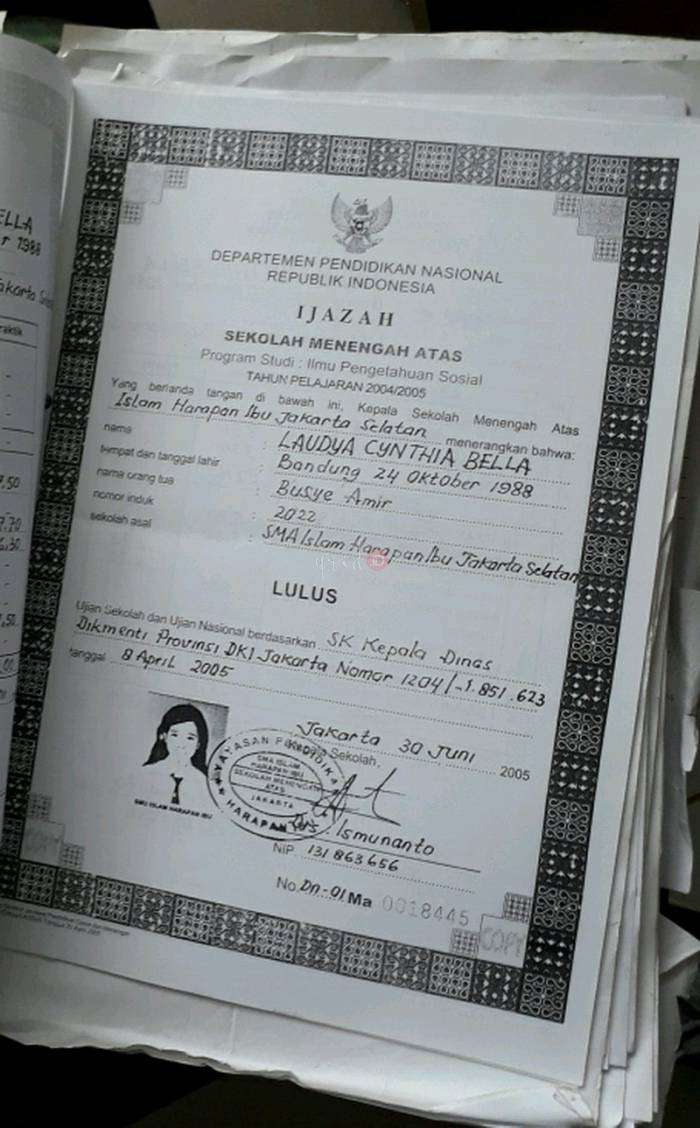 ELLA
r 1988
akarta Se
raktik
7.50
7.70
6.30
DEPARTEMEN PENDIDIKAN NASIONAL
REPUBLIK INDONESIA
IJAZAH
SEKOLAH MENENGAH ATAS
Program Studi : Ilmu Pengetahuan Sosial
TAHUN PELAJARAN 2004/2005
Yang bertanda tangan di bawah ini, Kepala Sekolah Menengah Atas
Islam Harapan Ibu Jakarta Selatan menerangkan bahwa:
nama : LAUDYA CYNTHIA BELLA
tempat dan tanggal lahir : Bandung 24 Oktober 1988
nama orang tua : Busye Amir
nomor induk : 2022
sekolah asal : SMA Islam Harapan Ibu Jakarta Selatan
LULUS
Ujian Sekolah dan Ujian Nasional berdasarkan SK Kepala Dinas
Dikmenti Provinsi DKI Jakarta Nomor 1204/-1.851.623
tanggal 8 April 2005
Jakarta 30 Juni 2005
Kepala Sekolah,
YAYASAN PENDIDIKAN
SMA ISLAM
HARAPAN IBU
SEKOLAH MENENGAH
ATAS
JAKARTA
HARAPAN
SMU ISLAM HARAPAN IBU
Drs. Ismunanto
NIP. 131863656
No. Dn-01 Ma 0018445
COPY